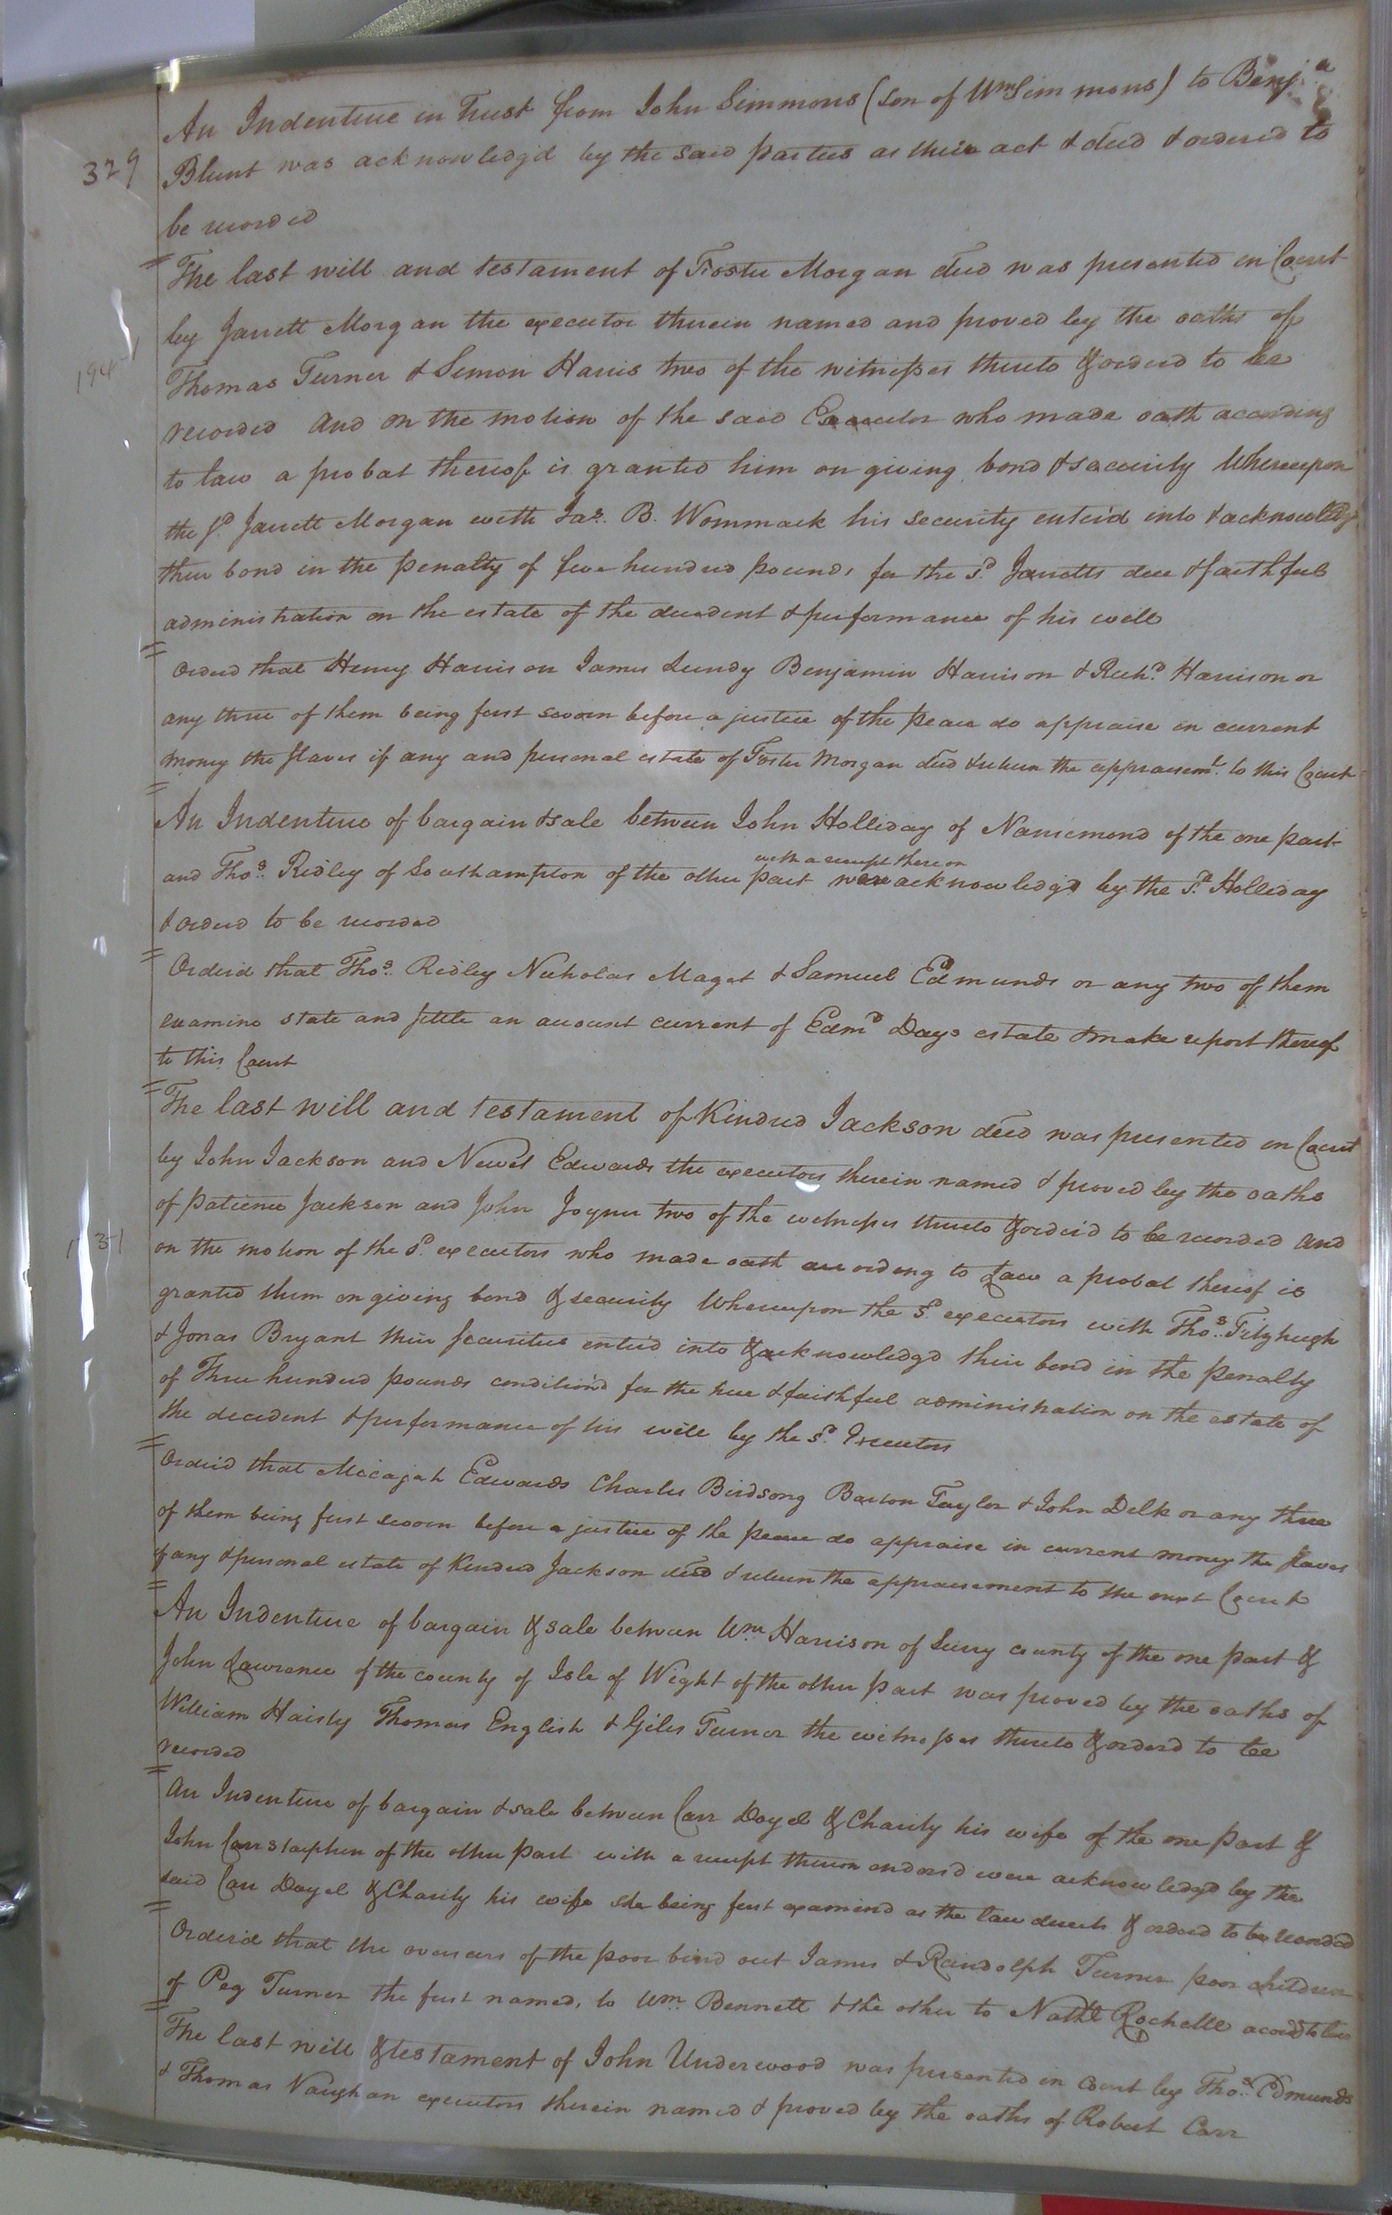 An Indenture in Trust from John Simmons (son of Wm Simmons) to Benja
329
Blunt was acknowledg'd by the said parties as their act & deed & ordered to
be recorded
The last will and testament of Foster Morgan decd was presented in Court
by Jarrett Morgan the executor therein named and proved by the oaths of
194
Thomas Turner & Simon Harris two of the witnesses thereto & orderd to be
recorded And on the motion of the said Executor who made oath according
to law a probat thereof is granted him on giving bond & security Whereupon
the sd Jarrett Morgan with Jas. B. Wommack his security enter'd into & acknowledg'd
their bond in the penalty of five hundred pounds for the sd Jarretts due & faithful
administration on the estate of the decedent & performance of his will
Orderd that Henry Harrison James Lundy Benjamin Harrison & Richd Harrison or
any three of them being first sworn before a justice of the peace do appraise in current
money the slaves if any and personal estate of Foster Morgan decd & return the appraisemt. to this Court
An Indenture of bargain & sale between John Holliday of Nansemond of the one part
with a receipt thereon
and Thos. Ridley of Southampton of the other part were acknowledgd by the sd Holliday
& orderd to be recorded
Orderd that Thos. Ridley Nicholas Maget & Samuel Edmunds or any two of them
examine state and settle an account current of Edmd Days estate & make report thereof
to this Court
The last will and testament of Kindred Jackson decd was presented in Court
by John Jackson and Newit Edwards the executors therein named & proved by the oaths
of patience Jackson and John Joyner two of the witnesses thereto & orderd to be recorded And
on the motion of the sd executors who made oath according to Law a probat thereof is
granted them on giving bond & security Whereupon the sd executors with Thos. Fitzhugh
& Jonas Bryant their securities enter'd into & acknowledg'd their bond in the penalty
of Three hundred pounds condition'd for the true & faithful administration on the estate of
the decedent & performance of his will by the sd Executors
Orderd that Micajah Edwards Charles Birdsong Barton Taylor & John Delk or any three
of them being first sworn before a justice of the peace do appraise in current money the slaves
if any & personal estate of Kindred Jackson decd & return the appraisement to the next Court
An Indenture of bargain & sale between Wm. Harrison of Surry county of the one part &
John Lawrence of the county of Isle of Wight of the other part was proved by the oaths of
William Haisty Thomas English & Giles Turner the witnesses thereto & orderd to be
recorded
An Indenture of bargain & sale between Carr Doyel & Charity his wife of the one part &
John Carrstaphen of the other part with a receipt thereon endorsd were acknowledgd by the
said Carr Doyel & Charity his wife she being first examined as the law directs & orderd to be recorded
Orderd that the overseers of the poor bind out James & Randolph Turner poor children
of Peg Turner the first named, to Wm. Bennett & the other to Nathl Rochelle accordg to law
The last will & testament of John Underwood was presented in court by Thos. Edmunds
& Thomas Vaughan executors therein named & proved by the oaths of Robert Carr